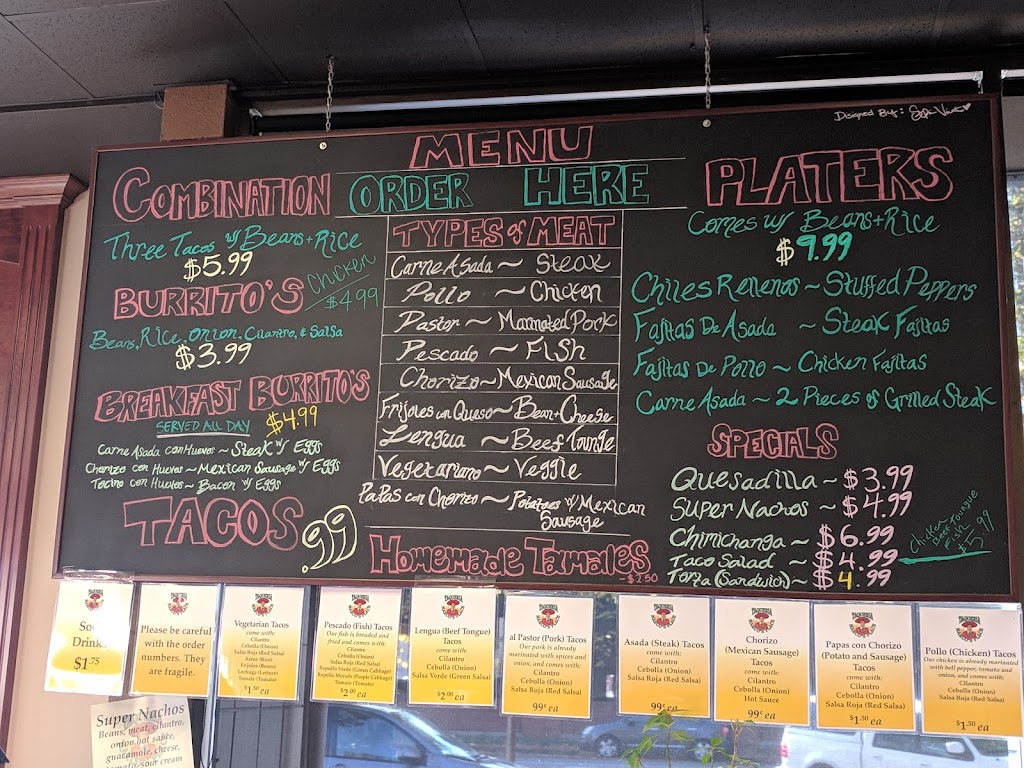 Designed By:
MENU
ORDER HERE
COMBINATION
Three Tacos w/ Beans + Rice
$5.99
BURRITO'S
Chicken
$4.99
Beans, Rice, Onion, Cilantro, & Salsa
$3.99
BREAKFAST BURRITO'S
SERVED ALL DAY
$4.99
Carne Asada con Huevos ~ Steak w/ Eggs
Chorizo con Huevos ~ Mexican Sausage w/ Eggs
Tocino con Huevos ~ Bacon w/ Eggs
TACOS .99
TYPES of MEAT
Carne Asada ~ Steak
Pollo ~ Chicken
Pastor ~ Marinated Pork
Pescado ~ Fish
Chorizo ~ Mexican Sausage
Frijoles con Queso ~ Bean + Cheese
Lengua ~ Beef Tounge
Vegetariano ~ Veggie
Papas con Chorizo ~ Potatoes w/ Mexican
Sausage
Homemade Tamales
- $2.50
PLATERS
Comes w/ Beans + Rice
$9.99
Chiles Rellenos ~ Stuffed Peppers
Fajitas De Asada ~ Steak Fajitas
Fajitas De Pollo ~ Chicken Fajitas
Carne Asada ~ 2 Pieces of Grilled Steak
SPECIALS
Quesadilla ~ $3.99
Super Nachos ~ $4.99
Chimichanga ~ $6.99
Taco Salad ~ $4.99
Torta (Sandwich) ~ $4.99
Chicken
Beef Toungue
Fish
$5.99
Drink
$1.75
Please be careful
with the order
numbers. They
are fragile.
Vegetarian Tacos
come with:
Cilantro
Cebolla (Onion)
Salsa Roja (Red Salsa)
Arroz (Rice)
Frijoles (Beans)
Lechuga (Lettuce)
Tomate (Tomato)
$1.50 ea
Pescado (Fish) Tacos
Our fish is breaded and
fried and comes with:
Cilantro
Cebolla (Onion)
Salsa Roja (Red Salsa)
Repollo Verde (Green Cabbage)
Repollo Morado (Purple Cabbage)
Tomate (Tomato)
$2.00 ea
Lengua (Beef Tongue)
Tacos
come with:
Cilantro
Cebolla (Onion)
Salsa Verde (Green Salsa)
$2.00 ea
al Pastor (Pork) Tacos
Our pork is already
marinated with spices and
onion, and comes with:
Cilantro
Cebolla (Onion)
Salsa Roja (Red Salsa)
99¢ ea
Asada (Steak) Tacos
come with:
Cilantro
Cebolla (Onion)
Salsa Roja (Red Salsa)
99¢ ea
Chorizo
(Mexican Sausage)
Tacos
come with:
Cilantro
Cebolla (Onion)
Hot Sauce
99¢ ea
Papas con Chorizo
(Potato and Sausage)
Tacos
come with:
Cilantro
Cebolla (Onion)
Salsa Roja (Red Salsa)
$1.50 ea
Pollo (Chicken) Tacos
Our chicken is already marinated
with bell pepper, tomato and
onion, and comes with:
Cilantro
Cebolla (Onion)
Salsa Roja (Red Salsa)
$1.50 ea
Super Nachos
Beans, meat, cilantro,
onion hot sauce,
guacamole, cheese,
tomato, sour cream